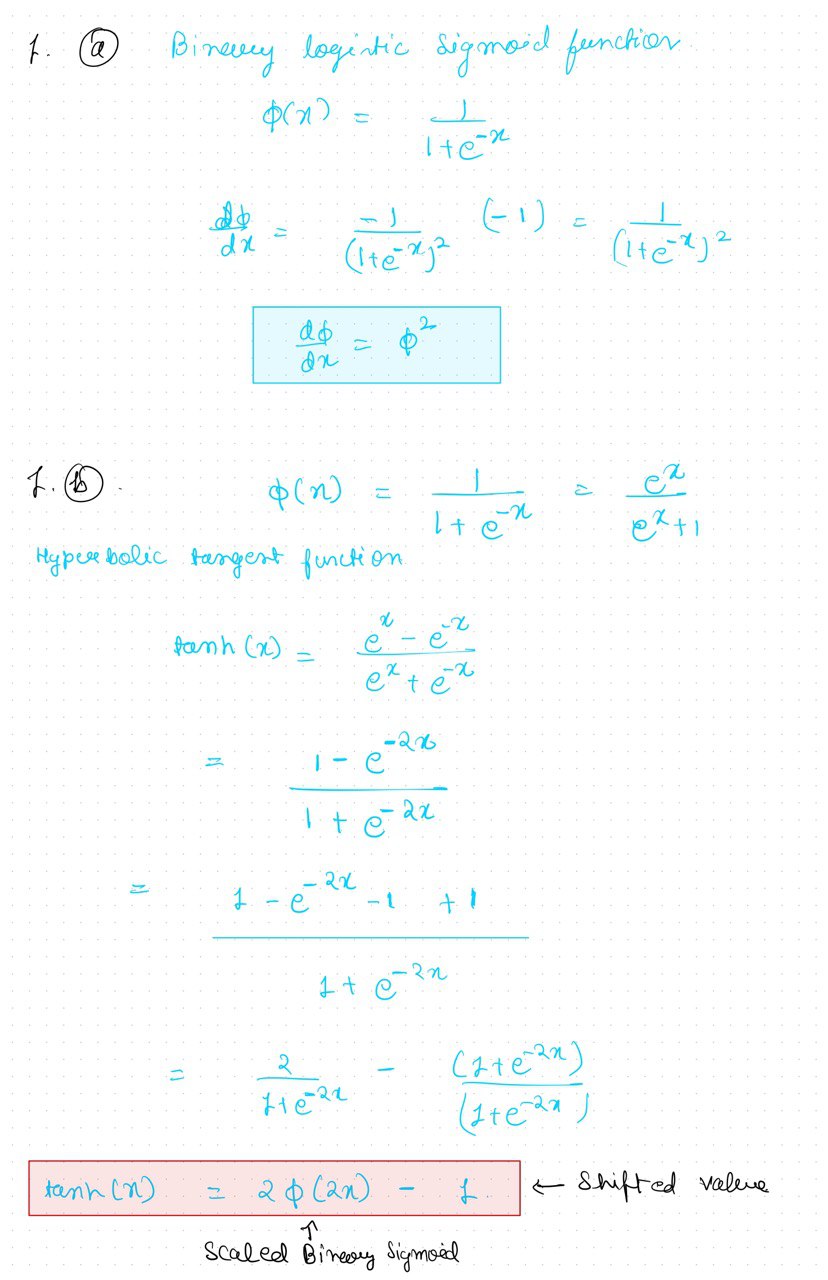 1. (a) Binary logistic sigmoid function.
ϕ(x) = 1/(1+e^{-x})
dϕ/dx = -1/(1+e^{-x})^2 (-1) = 1/(1+e^{-x})^2
dϕ/dx = ϕ^2
1. (b). ϕ(x) = 1/(1+e^{-x}) = e^x/(e^x+1)
Hyperbolic tangent function
tanh(x) = (e^x - e^{-x})/(e^x + e^{-x})
= (1 - e^{-2x})/(1 + e^{-2x})
= (1 - e^{-2x} - 1 + 1)/(1 + e^{-2x})
= 2/(1+e^{-2x}) - (1+e^{-2x})/(1+e^{-2x})
tanh(x) = 2ϕ(2x) - 1. ← Shifted value
↑
Scaled Binary Sigmoid